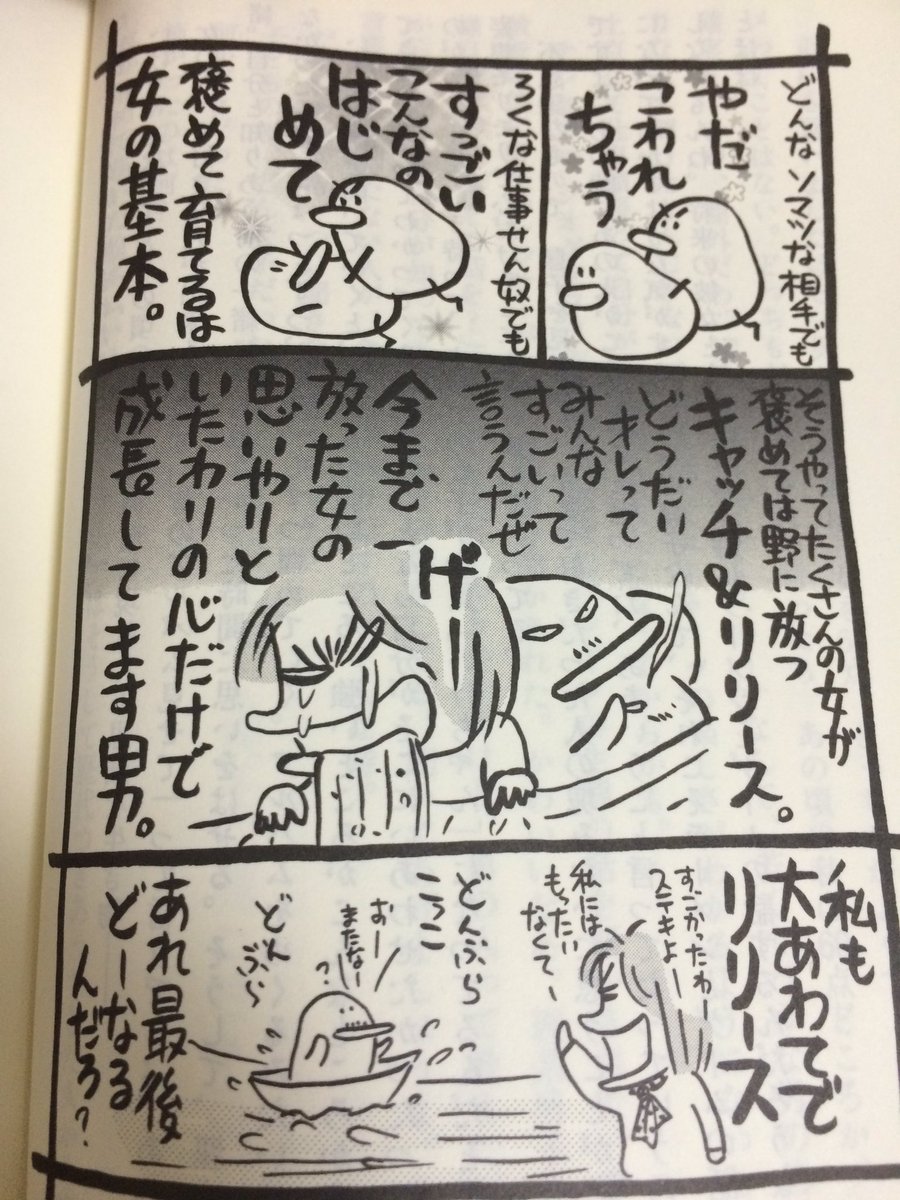 どんなソマツな相手でも
やだ
こわれ
ちゃう
ろくな仕事せん奴でも
すっごい
こんなの
はじ
めて
褒めて育てるは
女の基本。
そうやってたくさんの女が
褒めては野に放つ
キャッチ&リリース。
どうだい
オレって
みんな
すごいって
言うんだぜ
げーー
今まで
放った女の
思いやりと
いたわりの心だけで
成長してます男。
私も
大あわてで
リリース
すごかったわー
ステキよー
私には
もったい
なくてー
どんぶら
こっこ
おー
またなー
どん
ぶら
あれ最後
どーなる
んだろ?